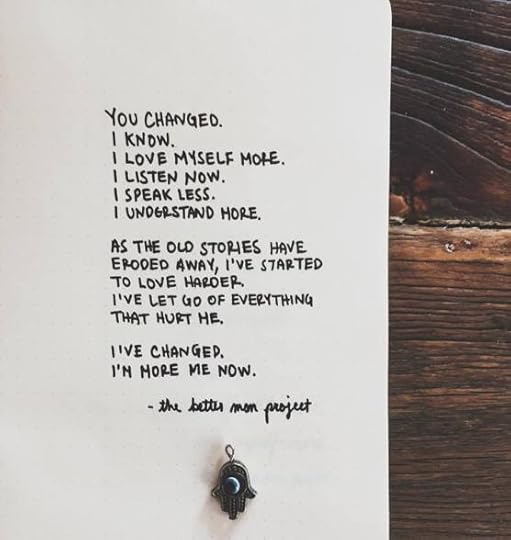 YOU CHANGED.
I KNOW.
I LOVE MYSELF MORE.
I LISTEN NOW.
I SPEAK LESS.
I UNDERSTAND MORE.
AS THE OLD STORIES HAVE
ERODED AWAY, I'VE STARTED
TO LOVE HARDER.
I'VE LET GO OF EVERYTHING
THAT HURT ME.
I'VE CHANGED.
I'M MORE ME NOW.
- the better man project